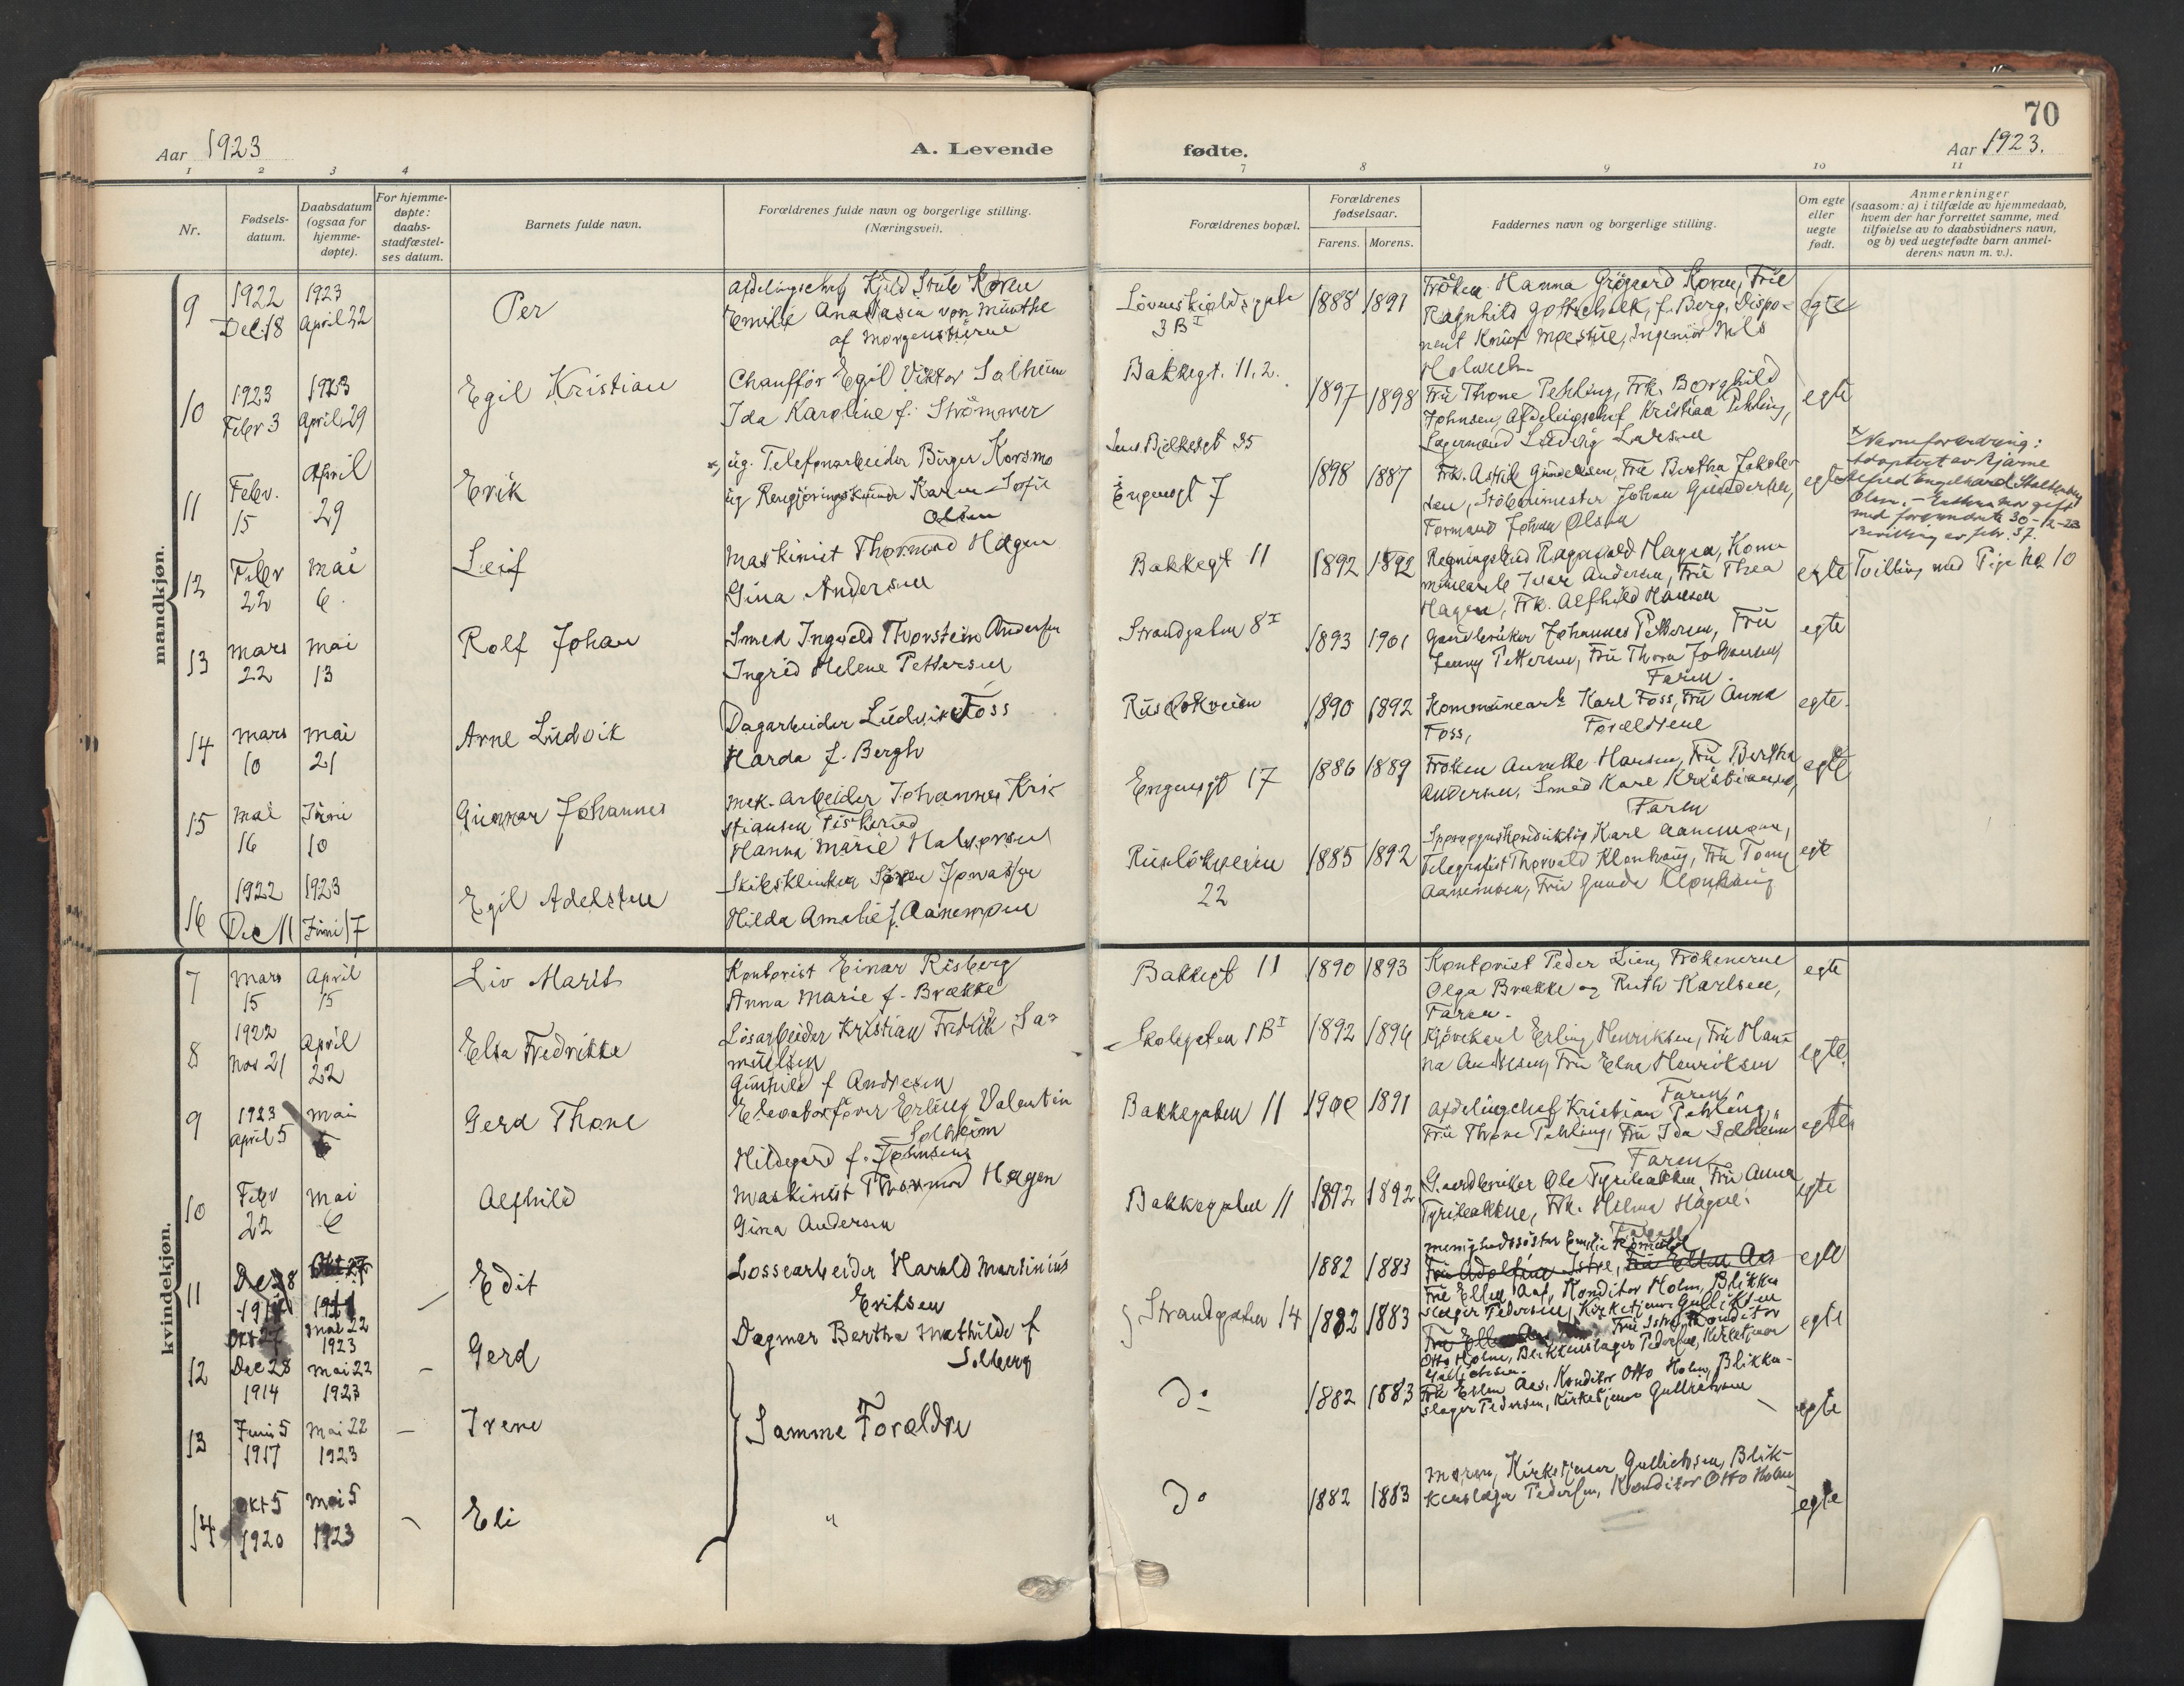 70
Aar 1923
A. Levende
fødte.
Aar 1923.
1 2 3 4 7 8 9 10 11
Nr.
Fødsels-
datum.
Daabsdatum
(ogsaa for
hjemme-
døpte).
For hjemme-
døpte:
daabs-
stadfæstel-
ses datum.
Barnets fulde navn.
Forældrenes fulde navn og borgerlige stilling.
(Næringsvei).
Forældrenes bopæl.
Forældrenes
fødselsaar.
Farens. Morens.
Faddernes navn og borgerlige stilling.
Om egte
eller
uegte
født.
Anmerkninger
(saasom: a) i tilfælde av hjemmedaab,
hvem der har forrettet samme, med
tilføielse av to daabsvidners navn,
og b) ved uegtefødte barn anmel-
derens navn m. v.).
mandkjøn.
9
1922
Dec. 18
1923
April 22
Per
Afdelingschef Kjeld Stub Koren
Emilie Anastasia von Munthe
af Morgenstierne
Løvenskioldsgate
3 B I
1888 1891
Frøken Hanna Grøgaard Koren, Frue
Ragnhild Gottschalk, f. Berg, Dispo-
nent Knut Moestue, Ingeniør Nils
egte
10
1923
Febr 3
1923
April 29
Egil Kristian
Chauffør Egil Viktor Solheim
Ida Karoline f. Strømmer
Bakkegt. 11, 2.
1897 1898
Fru Thone Pehling, Frk. Borghild
Johnsen, Afdelingschef Kristian Pehling,
Lagermand Ludvig Larsen
egte
11
Febr.
15
April
29
Erik
ug. Telefonarbeider Birger Korsmo
ug Rengjøringskvinde Karen Sofie
Olsen
Jens Bjelkesgt 35
Engensgt 7
1898 1887
Frk. Astrid Gundersen, Fru Bertha Jakob-
sen, Støbemester Johan Gundersen,
Formand Johan Olsen
egte
Navneforandring:
Adoptert av Bjarne
Alfred Engelhard
Olsen.
30-12-23
12
Febr
22
Mai
6
Leif
Maskinist Thormod Hagen
Gina Andersen
Bakkegt 11
1892 1892
Ragnvald Hagen, Kom-
munearb Ivar Andersen, Fru Thea
Hagen, Frk. Alfhild Hansen
egte
Tvilling med Pige No 10
13
Mars
22
Mai
13
Rolf Johan
Smed Ingvald Thorstein Andersen
Ingrid Helene Pettersen
Strandgaten 8 I
1893 1901
Gaardbruker Johannes Pettersen, Fru
Jenny Pettersen, Fru Thora Johansen,
Faren.
egte
14
Mars
10
Mai
21
Arne Ludvik
Dagarbeider Ludvik Foss
Harda f. Bergh
Ruseløkveien
1890 1892
Kommunearb Karl Foss, Fru Anna
Foss, Forældrene
egte.
15
Mai
16
Juni
10
Gunnar Johannes
Mek. Arbeider Johannes Kris-
tiansen Fiskerud
Hanna Marie Halvorsen
Engensgt 17
1886 1889
Frøken Annette Hansen, Fru Bertha
Andersen, Smed Karl Kristiansen,
Faren
egte
16
1922
Dec 11
1923
Juni 17
Egil Adelsten
Skibsklinker Søren Jonassen
Hilda Amalie f. Aanensen
Ruseløkveien
22
1885 1892
Karl Aanensen,
Telegrafist Thorvald Klonhaug, Fru Tomy
Aanensen, Fru Gunda Klonhaug
egte
kvindekjøn.
7
Mars
15
April
15
Liv Marit
Kontorist Einar Risberg
Anna Marie f. Brække
Bakkegt 11
1890 1893
Kontorist Peder Lien, Frøkenerne
Olga Brække og Ruth Karlsen,
Faren.
egte
8
1922
Nov 21
April
22
Elsa Fredrikke
Løsarbeider Kristian Fredrik Sa-
muelsen
Gunhild f Andresen
Skolegaten 1 B I
1892 1896
Kjørekarl Erling Henriksen, Fru Han-
na Andresen, Fru Elna Henriksen
Faren
egte
9
1923
April 5
Mai
6
Gerd Thone
Elevatorfører Erling Valentin
Solheim
Hildegard f. Johnsen
Bakkegaten 11
1900 1891
Afdelingchef Kristian Pehling,
Fru Thone Pehling, Fru Ida Solheim
Faren
egte
10
Febr
22
Mai
6
Alfhild
Maskinist Thormod Hagen
Gina Andersen
Bakkegaten 11
1892 1892
Gaardbruker Ole Tyribakken, Fru Anna
Tyribakken, Frk. Helma Hagen.
Faren
egte
11
Dec 28
Okt 27
Mai 22
1923
Edit
Lossearbeider Harald Martinius
Eriksen
Dagmar Bertha Mathilde f
Solberg
Strandgaten 14
1882 1883
Menighedssøster Emilie
Fru Adolfine Istre, Fru Ellen Aas
Fru Ellen Aas, Konditor Holm, Blikken-
slager Pedersen, Kirketjener Gulliksen
egte
12
Dec 28
1914
Mai 22
1923
Gerd
1882 1883
Fru Istre, Konditor
Otto Holm, Blikkenslager Pedersen, Kirketjener
Gullichsen.
egte
13
Juni 5
1917
Mai 22
1923
Irene
Samme Forældre
Do
1882 1883
Frk Ellen Aas, Konditor Otto Holm, Blikken-
slager Pedersen, Kirketjener Gullichsen
egte
14
Okt 5
1920
Mai 5
1923
Eli
"
Do
1882 1883
Moren, Kirketjener Gullichsen, Blik-
kenslager Pedersen, Konditor Otto Holm
egte